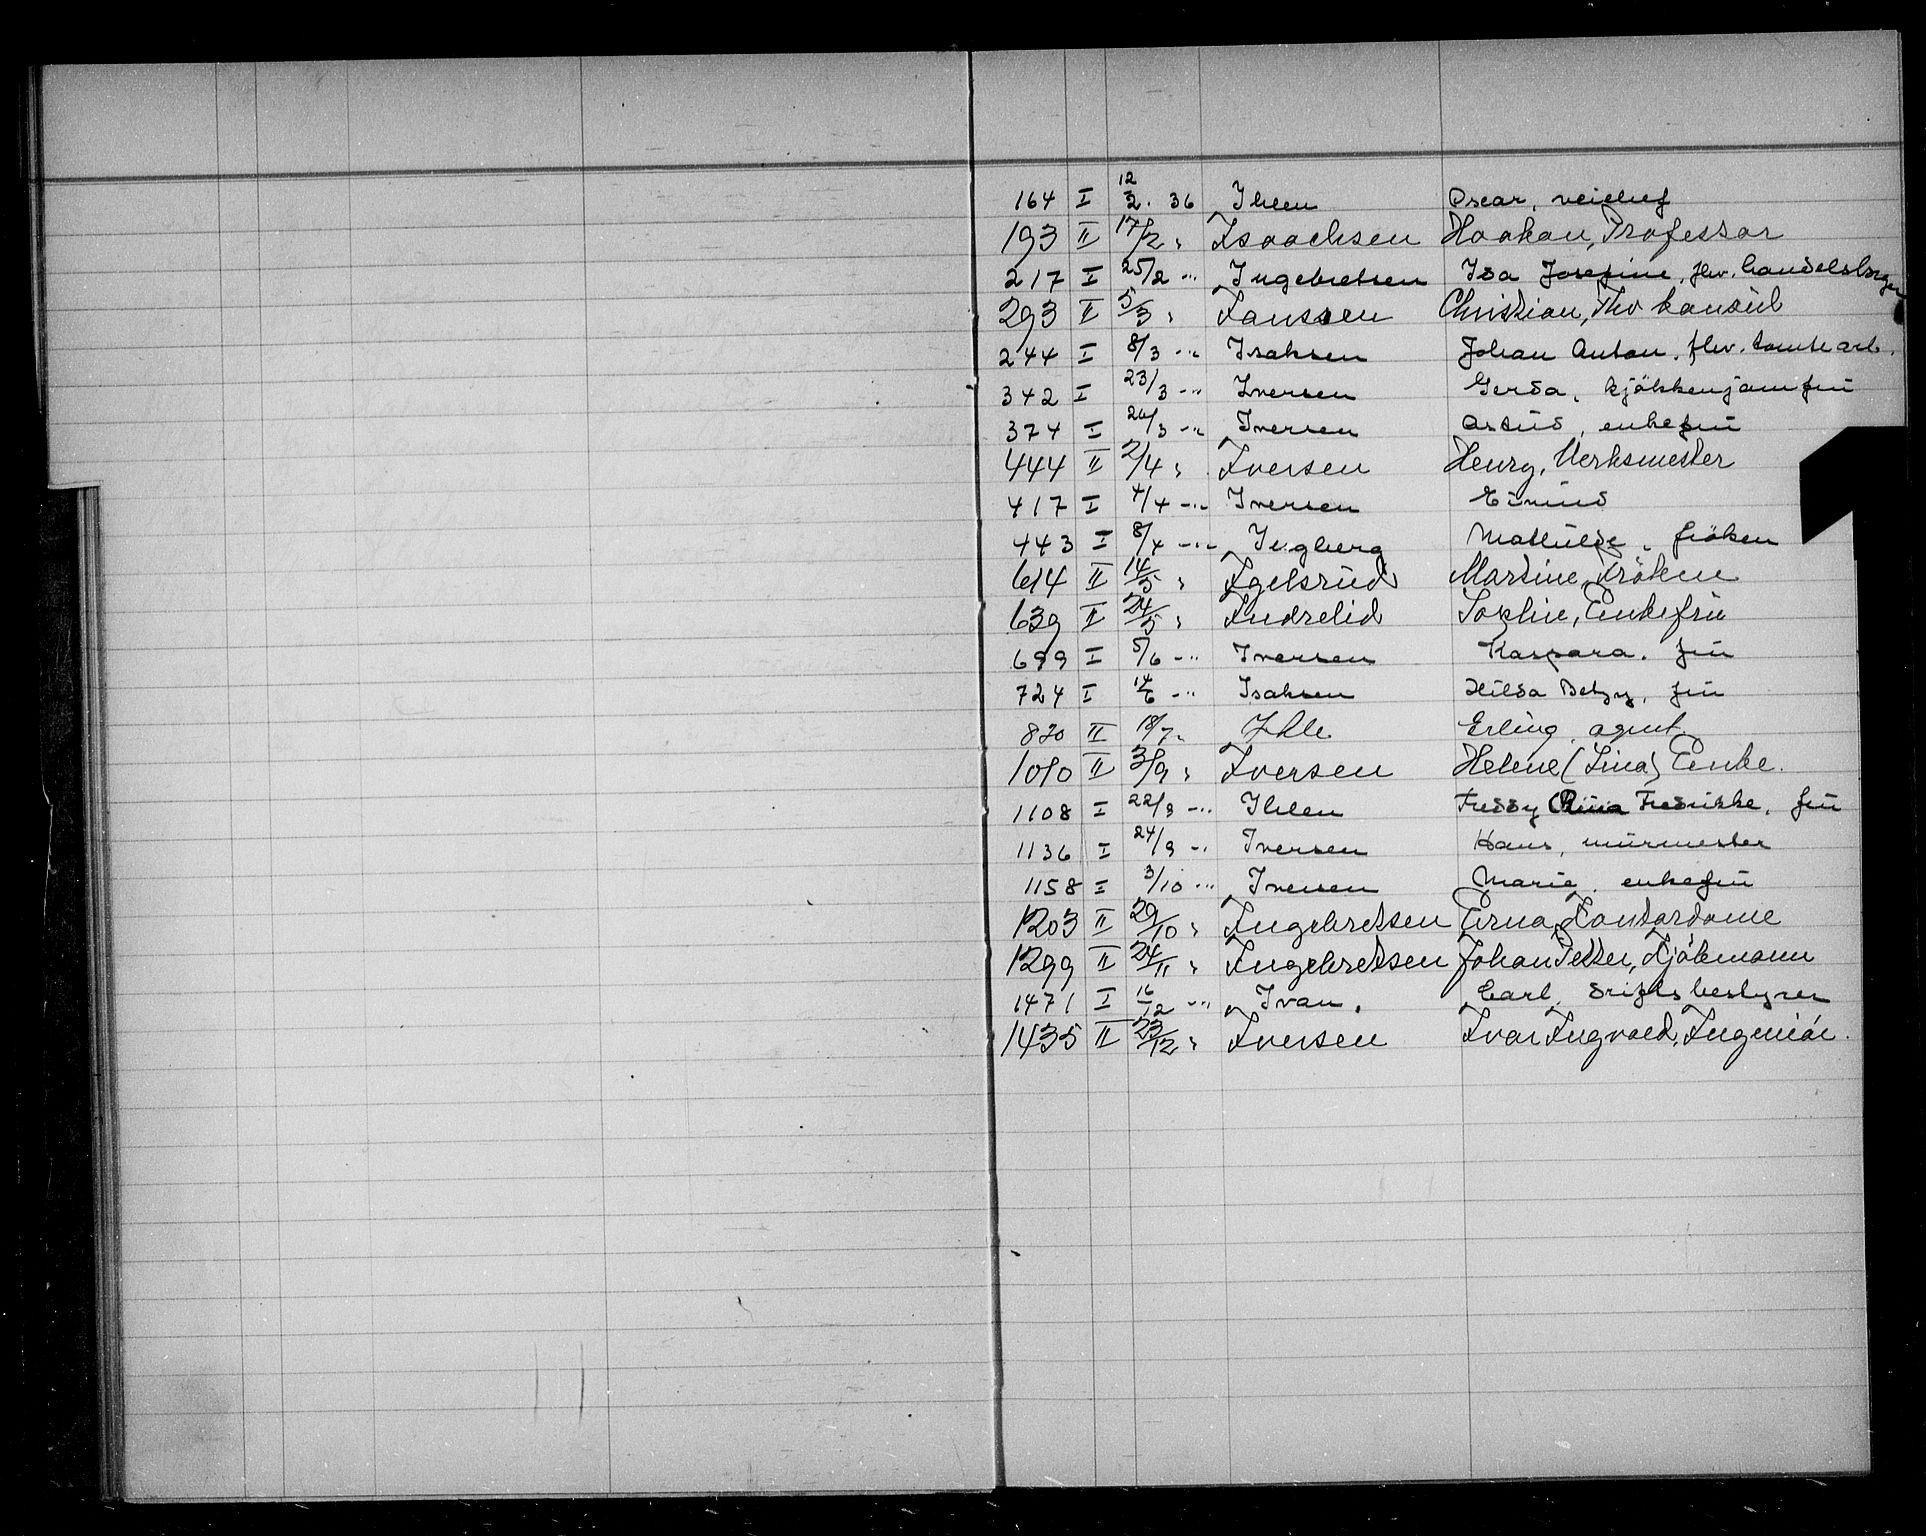 164 I 12/2. 36 Ihlen Oscar, veichef
193 II 17/2 " Isaachsen Haakon, Professor
217 I 25/2 -"- Ingebretsen Ida Josefine, fhv. handelsborger
293 II 5/3 " Janssen Christian, Fhv konsul
244 I 8/3 -"- Isaksen Johan Anton, fhv. tomtearb.
342 I 23/3 -"- Iversen Gerda, kjökkenjomfru
374 I 26/3 -"- Iversen Astrid, enkefru
444 II 2/4 " Iversen Henry, Verksmester
417 I 4/4 -"- Iversen Eivind
443 I 8/4 -"- Ingberg Mathilde, fröken
614 II 14/5 " Igelsrud Martine, Fröken
639 II 24/5 " Indrelid Sophie, Enkefru
699 I 5/6 -"- Iversen Kaspara, fru
724 I 14/6 -"- Isaksen Hilda Betzy, fru
820 II 18/7 " Ihle Erling, agent
1010 II 3/9 " Iversen Helene (Lina) Enke.
1108 I 22/9 -"- Ihlen Freddy Fredrikke, fru
1136 I 24/9 -"- Iversen Hans, murmester
1158 I 3/10 -"- Iversen Marie, enkefru
1203 II 29/10 " Ingebretsen Erna, Kontordame
1299 II 24/11 " Ingebretsen Johan Petter, Kjökmann
1471 I 16/12 -"- Ivan, Carl, driftsbestyrer
1435 II 23/12 " Iversen Ivar Ingvald, Ingeniör.